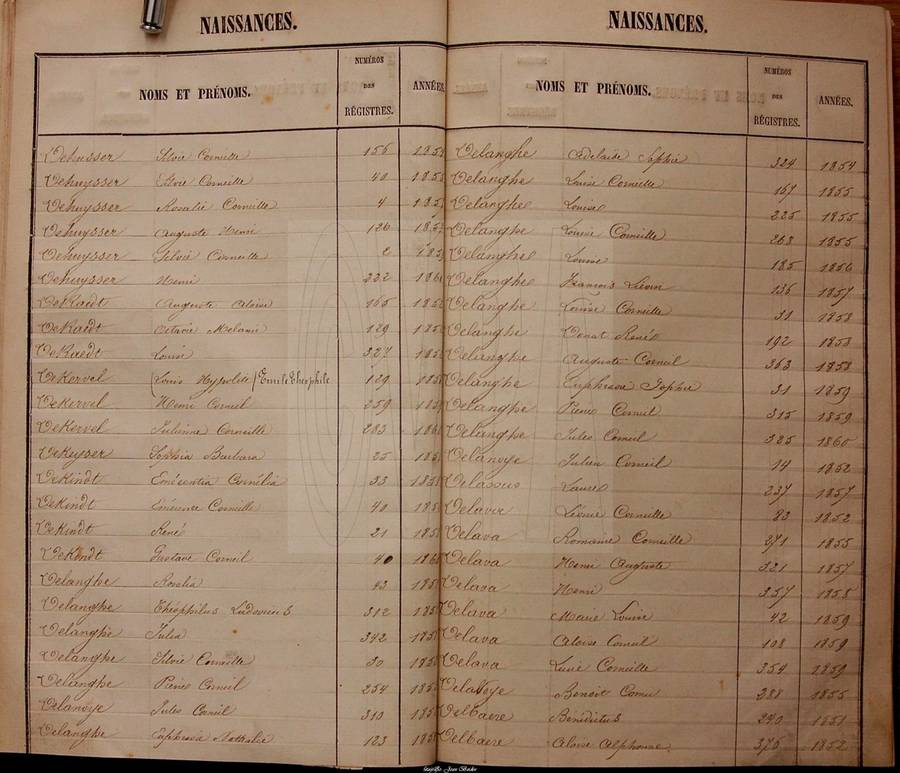 NAISSANCES.
NOMS ET PRÉNOMS. NUMÉROS DES RÉGISTRES. ANNÉES.
Dehuysser Silvie Corneille 156
Dehuysser Silvie Corneille 40
Dehuysser Rosalie Corneille 4
Dehuysser Auguste Henri 126
Dehuysser Silvie Corneille 2
Dehuysser Henri 232
DeKaedt Auguste Aloise 165
DeKaedt Octavie Melanie 129
DeKaedt Louise 327
DeKervel (Louis Hypolite) Emile Théophile 129
DeKervel Henri Corneil 259
DeKervel Julienne Corneille 283
DeKeyser Sophia Barbara 25
DeKindt Emerentia Cornélia 33
DeKindt Corneille 40
DeKindt René 21
DeKindt Gustave Corneil 40
Delanghe Rosalia 43
Delanghe Théophilus Ludovicus 312
Delanghe Julia 342
Delanghe Silvie Corneille 30
Delanghe Pierre Corneil 254
Delanoye Jules Corneil 310
Delanghe Euphrasia Nathalie 123
NAISSANCES.
NOMS ET PRÉNOMS. NUMÉROS DES RÉGISTRES. ANNÉES.
Delanghe Adelaide Sophie 324 1854
Delanghe Louise Corneille 167 1855
Delanghe Louise 225 1855
Delanghe Louise Corneille 268 1855
Delanghe Louise 185 1856
Delanghe François Lievin 136 1857
Delanghe Louise Corneille 31 1858
Delanghe Donat René 192 1858
Delanghe Auguste Corneil 363 1858
Delanghe Euphrasie Sophie 31 1859
Delanghe Pierre Corneil 315 1859
Delanghe Jules Corneil 325 1860
Delanoye Julien Corneil 14 1852
Delassus Laure 237 1857
Delavir Léonie Corneille 83 1852
Delava Romanie Corneille 271 1855
Delava Henri Auguste 321 1857
Delava Henri 357 1858
Delava Marie Louise 42 1859
Delava Aloise Corneil 108 1859
Delava Corneille 354 1859
Benoit 288 1855
Delbaere Bénédictus 290 1851
Delbaere Aloise Alphonse 376 1852